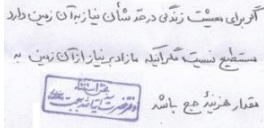 اگر برای معیشت زندگی در حد شأن نیاز به آن زمین دارد
مستطیع نیست مگر آنکه مازاد بر نیاز از آن زمین به
مقدار هزینهٔ حج باشد